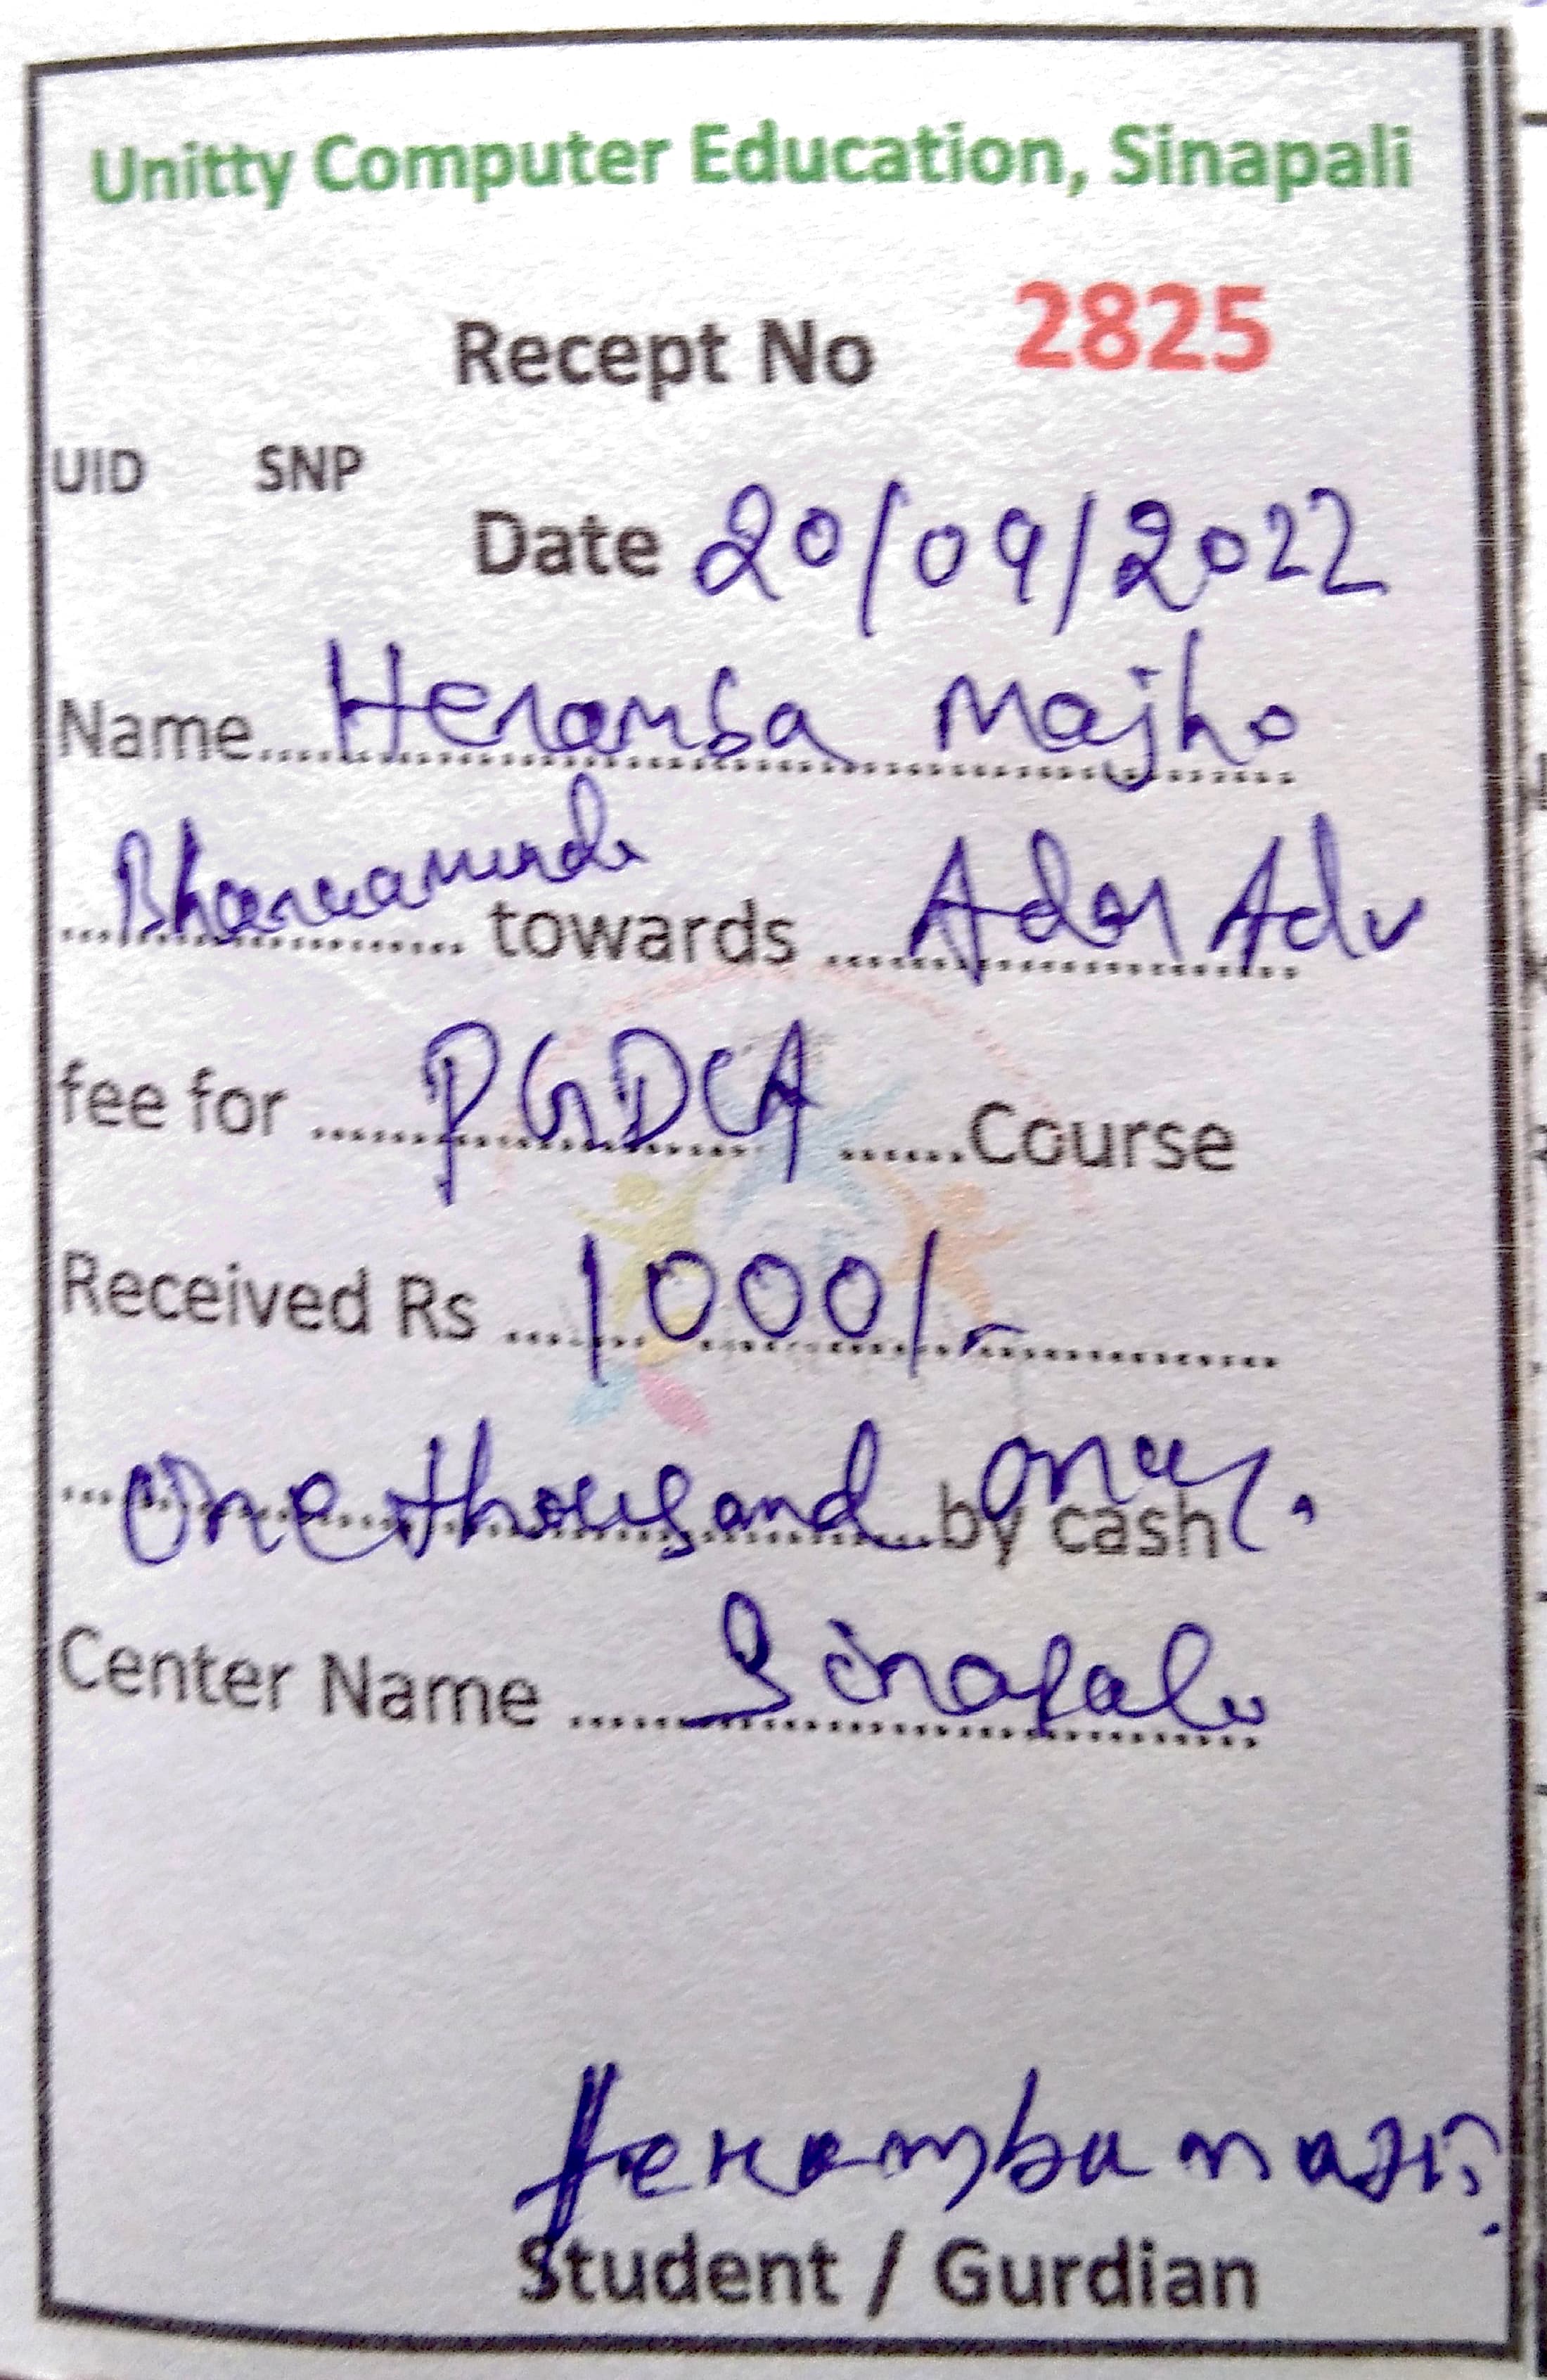 Unitty Computer Education, Sinapali
Recept No 2825
UID SNP
Date 20/09/2022
Name.... Heramba Majhi
.... towards .... Adm Adv
fee for .... PGDCA ......Course
Received Rs .... 1000/-
.... One thousand only. by cash
Center Name .... Sinapali
Heramba majhi
Student / Gurdian